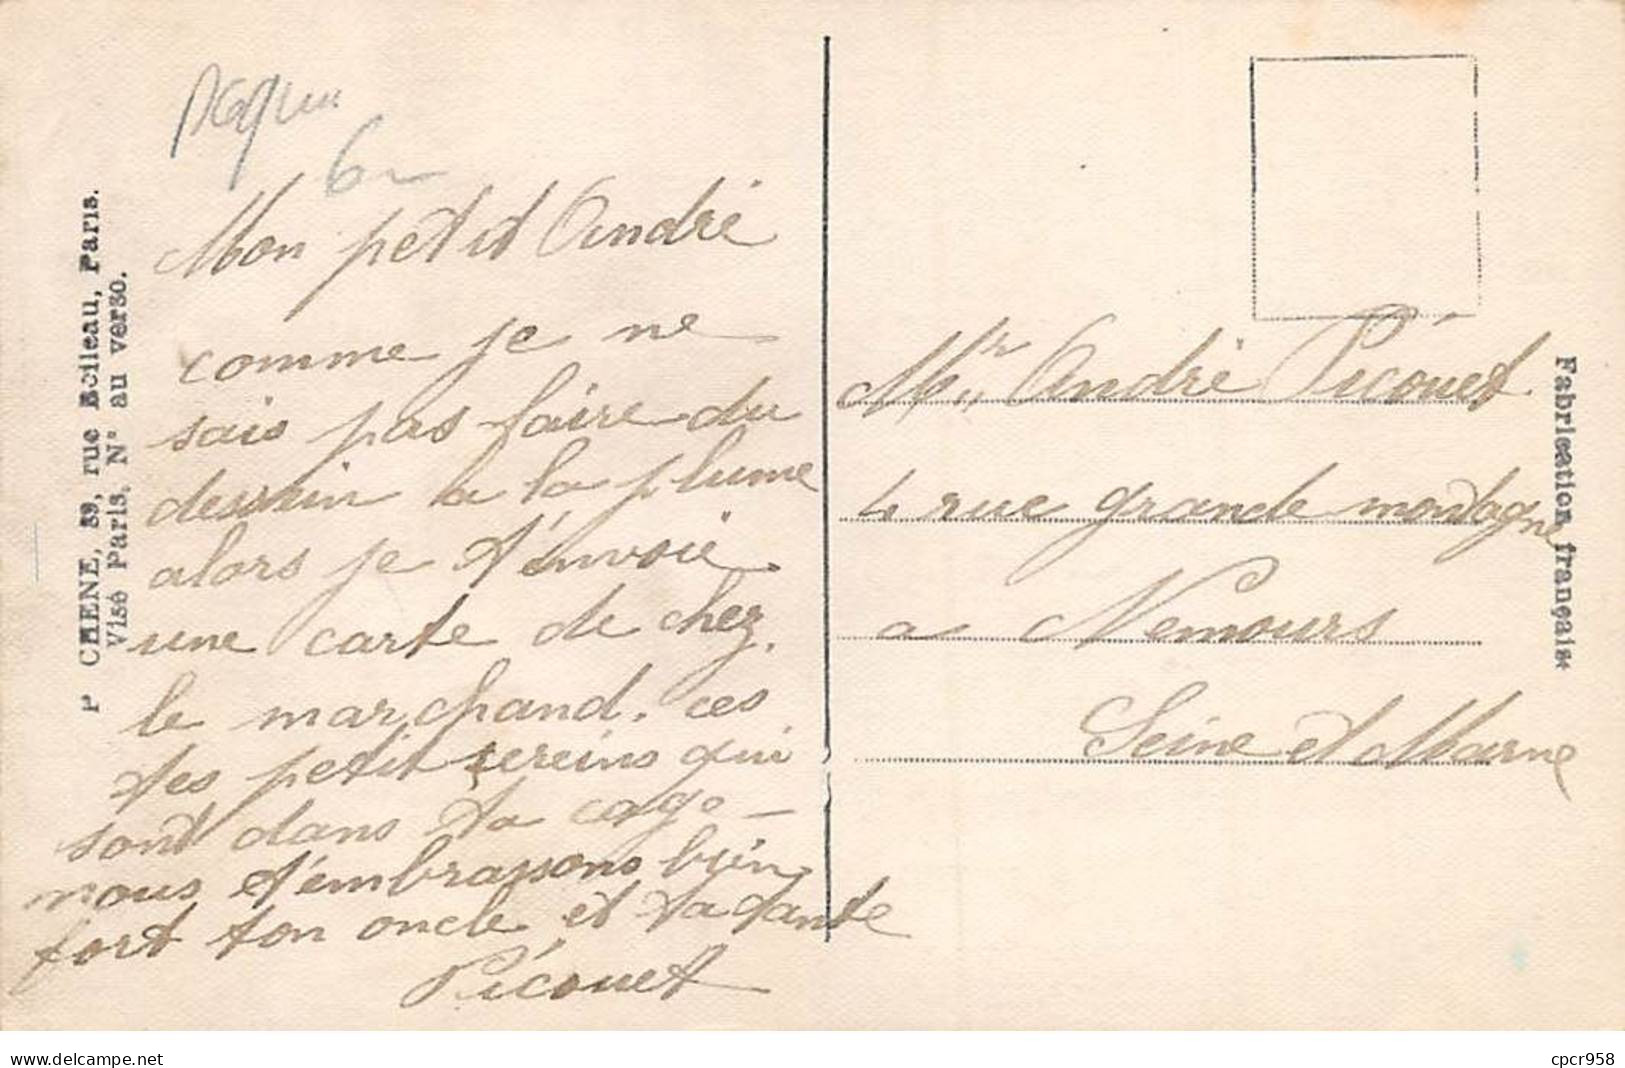 6
Mon petit André
comme je ne
sais pas faire du
dessein a la plume
alors je t'envoie
une carte de chez
le marchand. ces
tes petit sereins qui
sont dans ta cage
nous t'embrassons bien
fort ton oncle et ta tante
Picouet
P CHENE, 39, rue Boileau, Paris.
Visé Paris. N° au verso.
Mr André Picouet
4 rue grande montagne
a Nemours
Seine et Marne
Fabrication française
delcampe.net
cpcr958